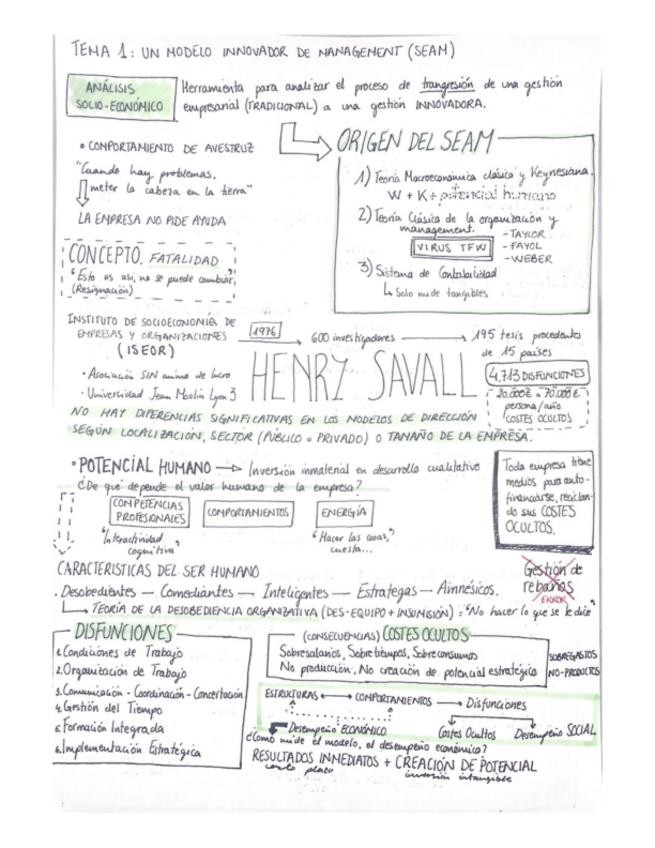 TEMA 1: UN MODELO INNOVADOR DE MANAGEMENT (SEAM)
ANÁLISIS
SOCIO-ECONÓMICO
Herramienta para analizar el proceso de trangresión de una gestión
empresarial (TRADICIONAL) a una gestión INNOVADORA.
• COMPORTAMIENTO DE AVESTRUZ
"Cuando hay problemas,
meter la cabeza en la tierra"
LA EMPRESA NO PIDE AYUDA
ORIGEN DEL SEAM
1) Teoría Macroeconómica clásica y Keynesiana.
W + K + potencial humano
2) Teoría Clásica de la organización y
management.
VIRUS TFW
- TAYLOR
- FAYOL
- WEBER
3) Sistema de Contabilidad
↳ Solo mide tangibles
CONCEPTO. FATALIDAD
"Esto es así, no se puede cambiar"
(Resignación)
INSTITUTO DE SOCIOECONOMÍA DE
EMPRESAS Y ORGANIZACIONES
(ISEOR)
1976
600 investigadores
195 tesis procedentes
de 15 países
• Asociación SIN animo de lucro
• Universidad Jean Moulin Lyon 3
HENRY SAVALL
4.713 DISFUNCIONES
20.000€ o 70.000€
persona/año
COSTES OCULTOS
NO HAY DIFERENCIAS SIGNIFICATIVAS EN LOS MODELOS DE DIRECCIÓN
SEGÚN LOCALIZACIÓN, SECTOR (PÚBLICO o PRIVADO) o TAMAÑO DE LA EMPRESA.
• POTENCIAL HUMANO → Inversión inmaterial en desarrollo cualitativo
¿De qué depende el valor humano de la empresa?
COMPETENCIAS
PROFESIONALES
COMPORTAMIENTOS
ENERGÍA
"Interactividad
cognitiva"
"Hacer las cosas,"
cuesta...
Toda empresa tiene
medios para auto-
financiarse, reciclan-
do sus COSTES
OCULTOS.
CARACTERISTICAS DEL SER HUMANO
Gestión de
rebaños
ERROR
. Desobedientes — Comediantes — Inteligentes — Estrategas — Amnésicos.
↳ TEORÍA DE LA DESOBEDIENCIA ORGANIZATIVA (DES-EQUIPO + INSUMISIÓN) = "No hacer lo que se le dice"
DISFUNCIONES
1. Condiciones de Trabajo
2. Organización de Trabajo
3. Comunicación - Coordinación - Concertación
4. Gestión del Tiempo
5. Formación Integrada
6. Implementación Estratégica
(CONSECUENCIAS) COSTES OCULTOS
Sobresalarios, Sobretiempos, Sobreconsumos
No producción, No creación de potencial estratégico
SOBREGASTOS
NO-PRODUCTOS
ESTRUCTURAS ↔ COMPORTAMIENTOS → Disfunciones
Desempeño ECONÓMICO
Costes Ocultos
Desempeño SOCIAL
¿Como mide el modelo, el desempeño económico?
RESULTADOS INMEDIATOS + CREACIÓN DE POTENCIAL
corto plazo
inversión intangible